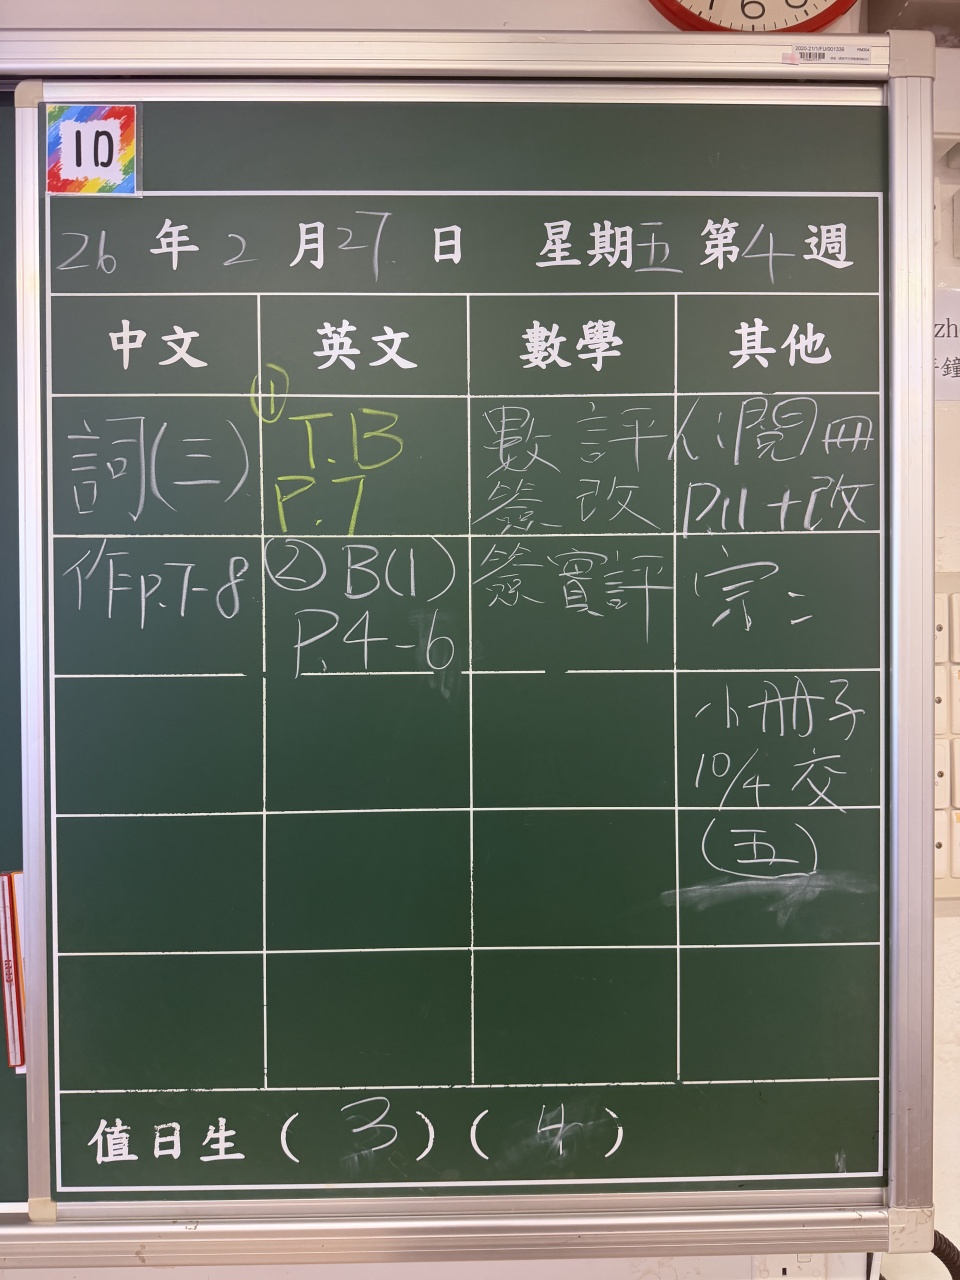 6
2020-21/1/FU/001339
RM204
1D
26 年 2 月 27 日 星期五 第 4 週
中文 英文 數學 其他
詞(三)
作P.7-8
① T.B
P.7
② B(1)
P.4-6
數評
簽改
簽實評
閱冊
P.11+改
宗二
小冊子
10/4 交
(五)
值日生 ( 3 ) ( 4 )
zh
鐘